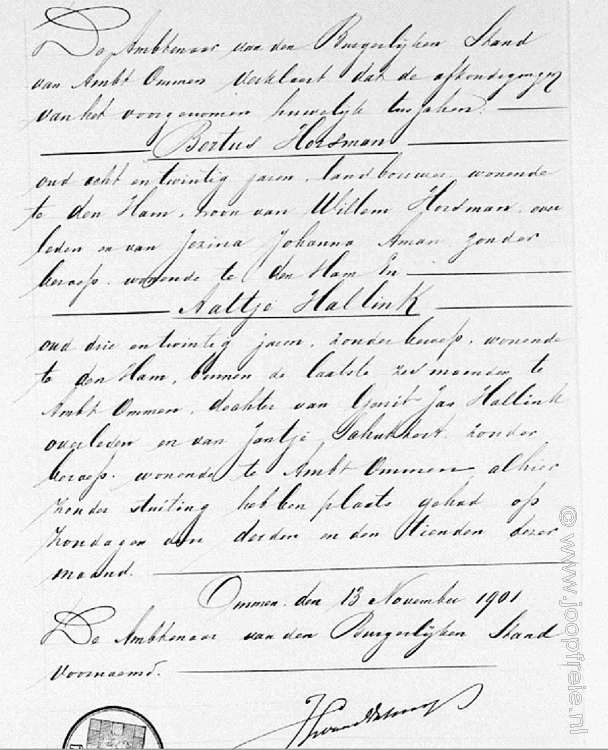 De Ambtenaar van den Burgerlijken Stand
van Ambt Ommen verklaart dat de afkondigingen
van het voorgenomen huwelijk tusschen
Bertus Horsman
oud acht en twintig jaren, landbouwer, wonende
te den Ham, zoon van Willem Horsman, over
leden en van Jezina Johanna Aman zonder
beroep, wonende te den Ham En
Aaltje Hallink
oud drie en twintig jaren, zonder beroep, wonende
te den Ham, binnen de laatste zes maanden te
Ambt Ommen, dochter van Gerrit Jan Hallink
overleden en van Jantje zonder
beroep, wonende te Ambt Ommen, alhier
zonder stuiting hebben plaats gehad op
Zondagen den derden en den tienden dezer
maand.
Ommen, den 13 November 1901
De Ambtenaar van den Burgerlijken Stand
voornoemd.
© www.joopfrele.nl